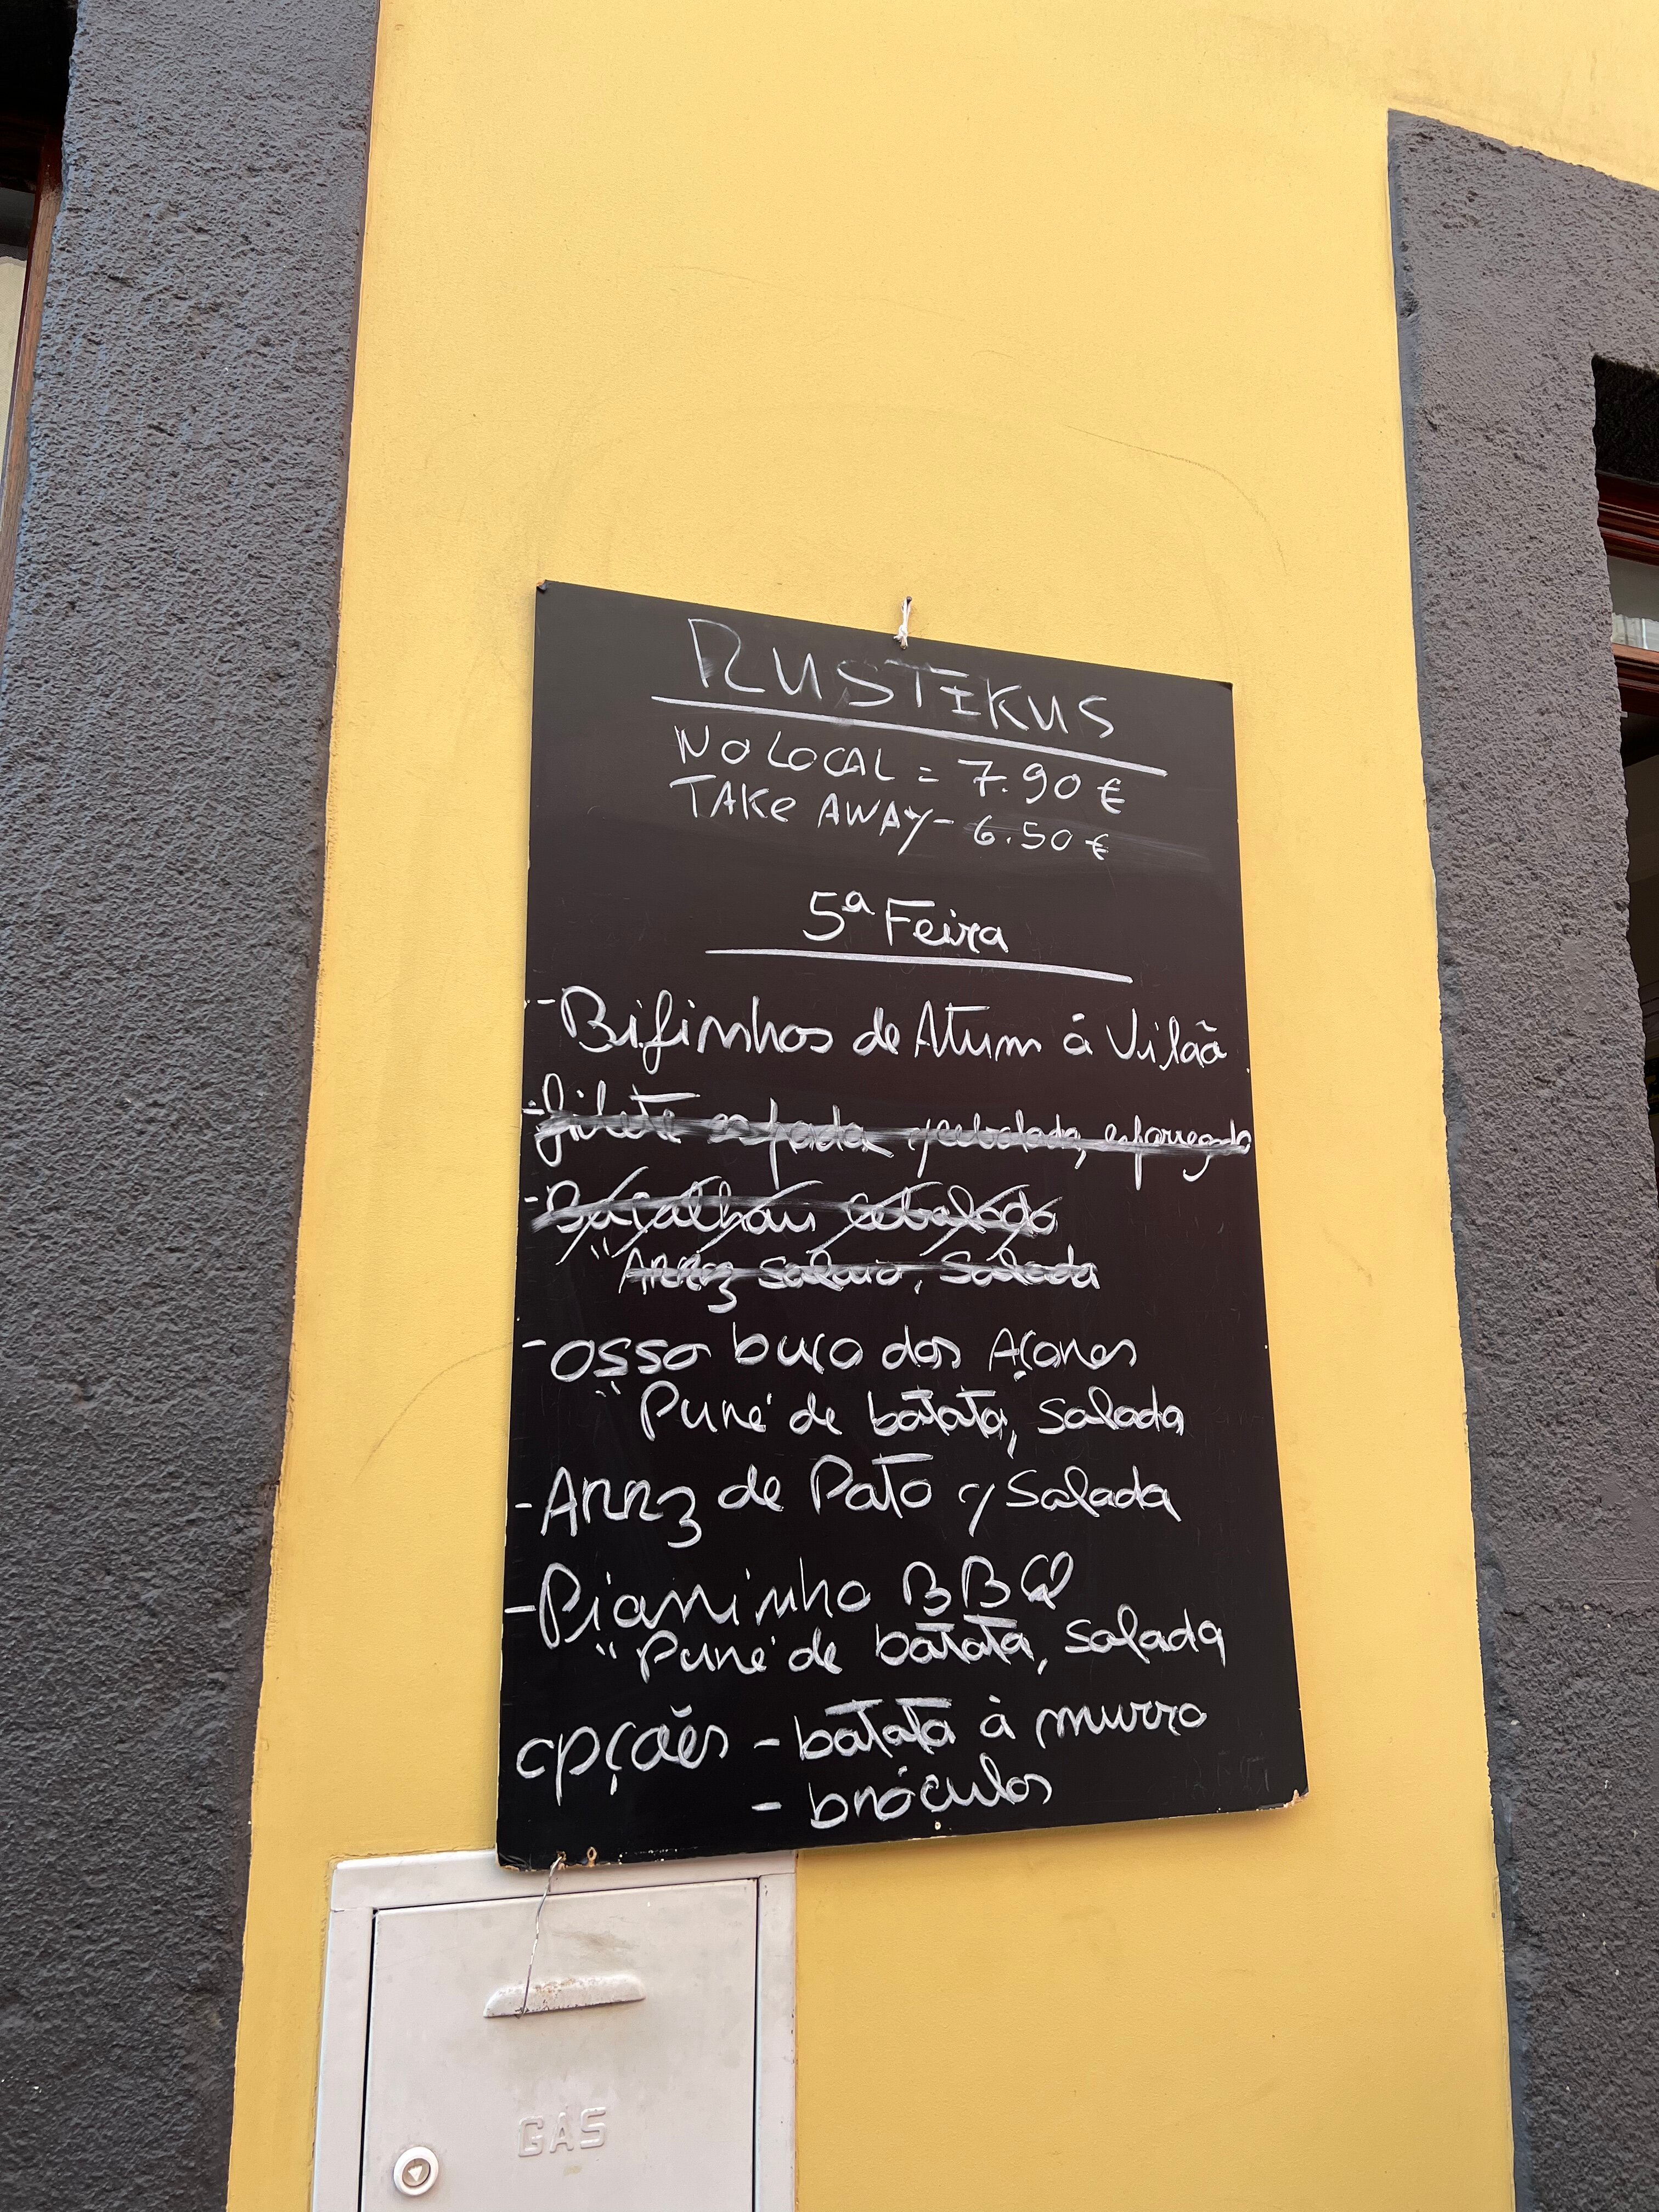 RUSTIKUS
NO LOCAL = 7.90 €
TAKE AWAY - 6.50 €
5ª Feira
- Bifinhos de Atum á Vilão
- filete espada c/ cebolada, esparregado
- Bacalhau Cebolada
" Arroz saloio, Salada
- osso buco dos Açores
" Puré de batata, Salada
- Arroz de Pato c/ Salada
- Pianinho BBQ
" Puré de batata, salada
opções - batata à murro
- bróculos
GÁS